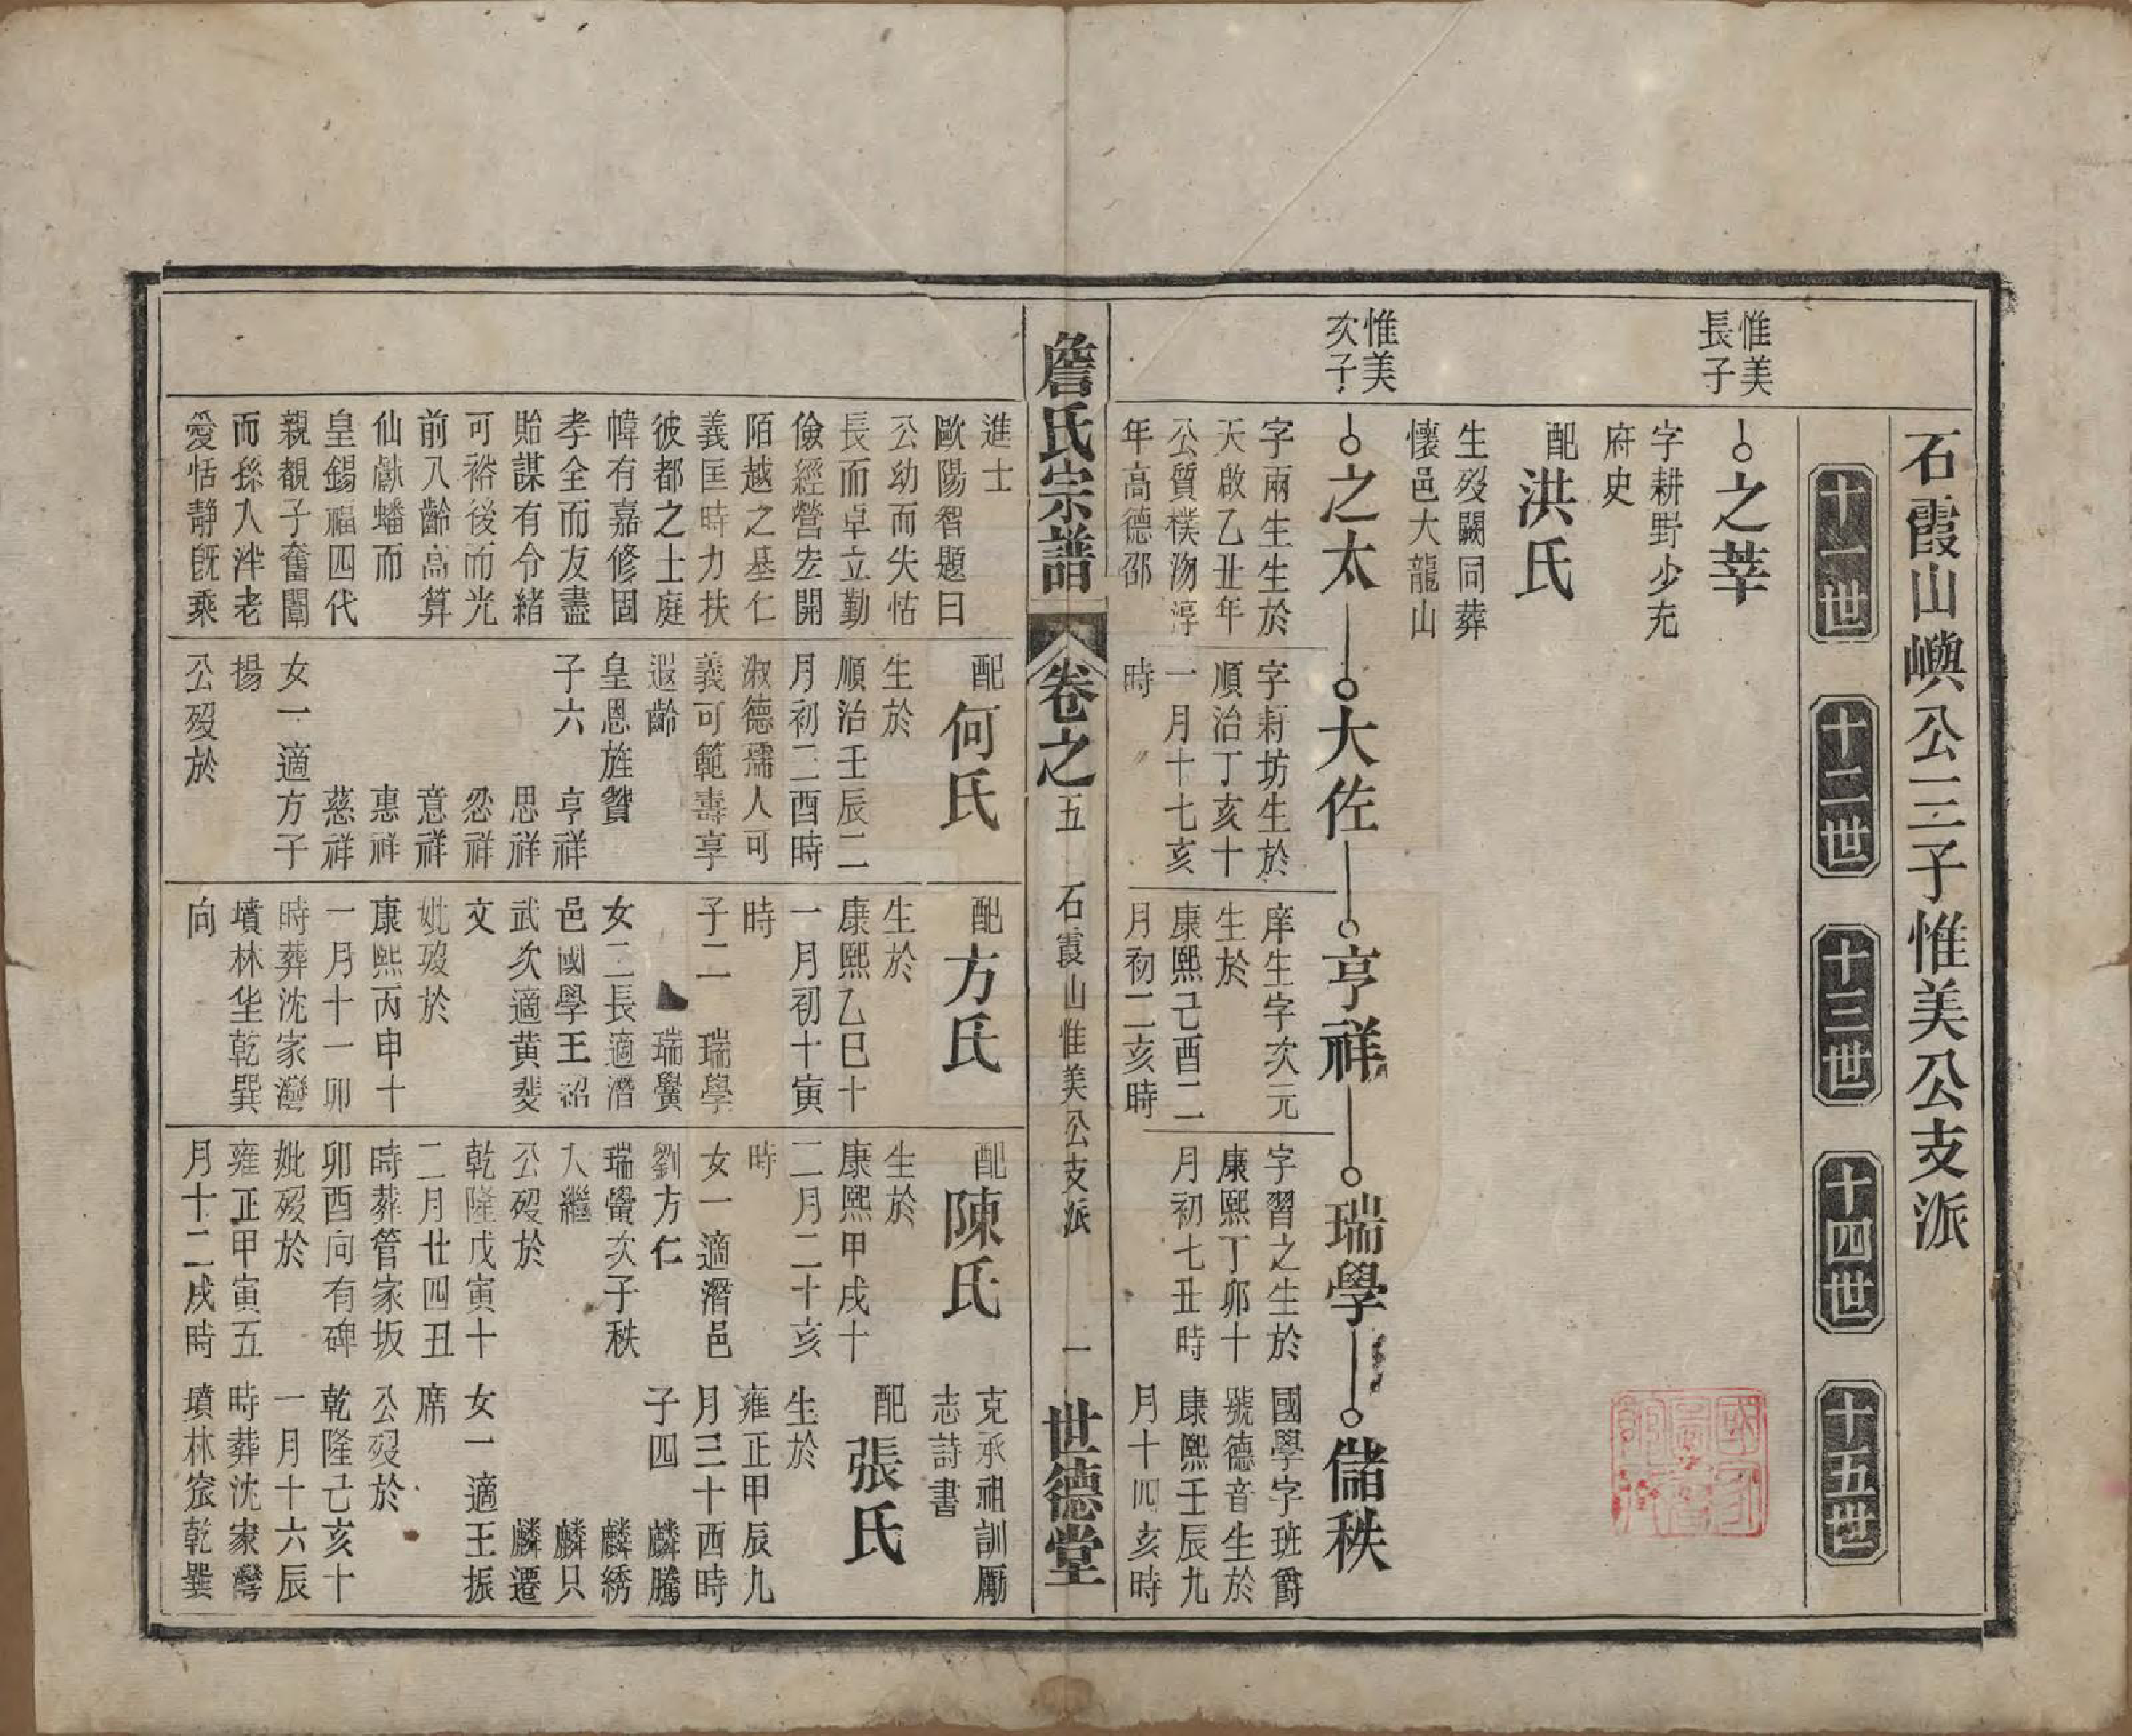 石霞山嶼公三子惟美公支派
十一世
十二世
十三世
十四世
十五世
惟美
長子
之莘
字耕野少充
府史
配洪氏
生歿闕同葬
懷邑大龍山
惟美
次子
之太
大佐
亨祥
瑞學
儲秩
字雨生生於
天啟乙丑年
公質樸沕淳
年高德邵
字莉坊生於
順治丁亥十
一月十七亥
時
庠生字次元
生於
康熙己酉二
月初二亥時
字習之生於
康熙丁卯十
月初七丑時
國學字班爵
號德音生於
康熙壬辰九
月十四亥時
詹氏宗譜
卷之五
石霞山惟美公支派
一
世德堂
進士
歐陽智題曰
公幼而失怙
長而卓立勤
儉經營宏開
陌越之基仁
義匡時力扶
彼都之士庭
幃有嘉修固
孝全而友盡
貽謀有令緒
可裕後而光
前八齡高算
仙獻蟠而
皇錫福四代
親覩子奮闈
而孫入泮老
愛恬靜旣乘
配何氏
生於
順治壬辰二
月初二酉時
淑德孺人可
義可範壽享
遐齡
皇恩旌贊
子六 亨祥
思祥
忩祥
意祥
惠祥
慈祥
女一適方子
揚
公歿於
配方氏
生於
康熙乙巳十
一月初十寅
時
子二 瑞學
瑞黌
女二長適潛
邑國學王沼
武次適黄斐
文
妣歿於
康熙丙申十
一月十一卯
時葬沈家灣
墳林坐乾巽
向
配陳氏
生於
康熙甲戌十
二月二十亥
時
女一適潛邑
劉方仁
瑞黌次子秩
入繼
公歿於
乾隆戊寅十
二月廿四丑
時葬管家坂
卯酉向有碑
妣歿於
雍正甲寅五
月十二戌時
克承祖訓厲
志詩書
配張氏
生於
雍正甲辰九
月三十酉時
子四 麟騰
麟綉
麟只
麟遷
女一適王振
席
公歿於
乾隆己亥十
一月十六辰
時葬沈家灣
墳林窊乾巽